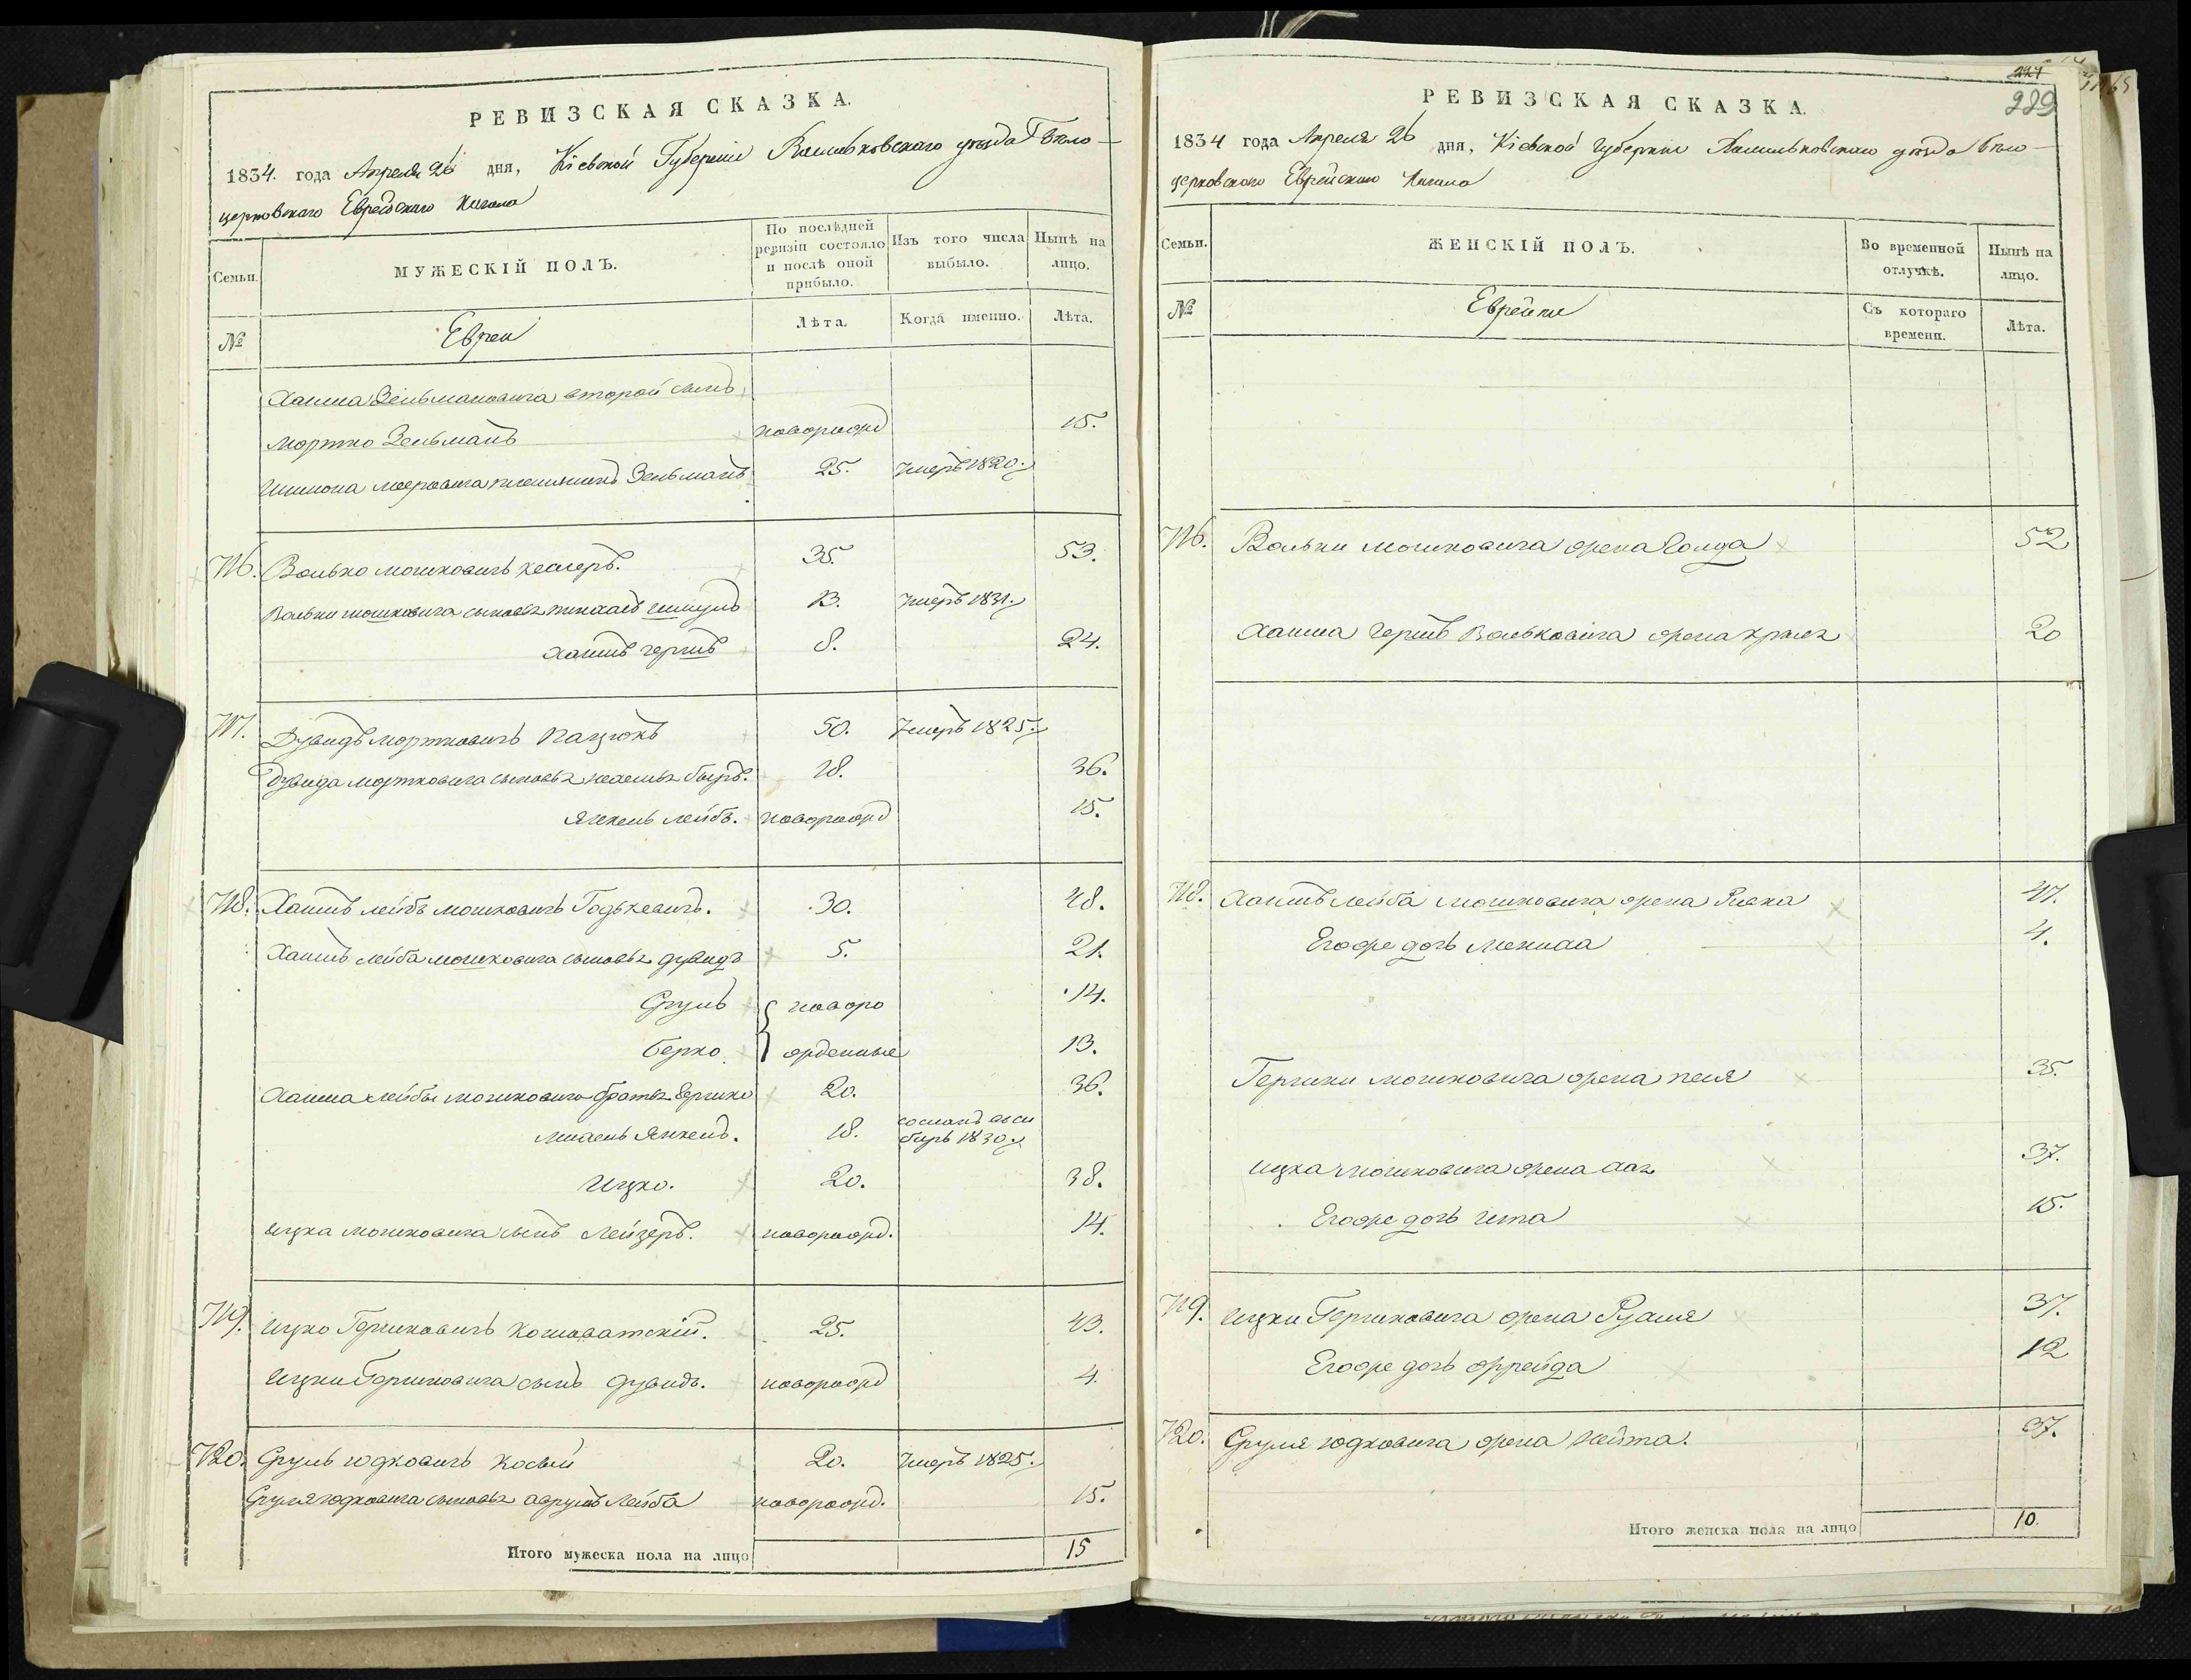 РЕВИЗСКАЯ СКАЗКА.
1834. года Апреля 26 дня, Кіевской Губерніи Васильковскаго уезда Бѣло-
церковскаго Еврейскаго Кагала
Семьи.
МУЖЕСКІЙ ПОЛЪ.
По послѣдней ревизіи состояло и послѣ оной прибыло.
Изъ того числа выбыло.
Нынѣ на лицо.
№
Евреи
Лѣта.
Когда именно.
Лѣта.
Хаима Зельмановича второй сынъ
Мортко Зельманъ новорожд 15.
Шимона Мееровича племяникъ Зельманъ 25. Умеръ 1820.
716. Волько Мошковичъ 35. 53.
Вольки Мошковича сыновья Пинхасъ Шмуль 13. Умеръ 1831.
Хаимъ Гершъ 8. 24.
717. Дувидъ Мортковичъ Пацюкъ 50. Умеръ 1825.
Дувида Мортковича сыновья Беръ. 18. 36.
Янкель Лейбъ. новорожд 15.
718. Хаимъ Лейбъ Мошковичъ 30. 48.
Хаимъ Лейба Мошковича сыновья Дувидъ 5. 21.
Сруль новоро 14.
Берко жденные 13.
Хаима Лейбы Мошковича братья Гершко 20. 36.
Янкель. 18. сосланъ въ си
биръ 1830
Ицко. 20. 38.
Ицка Мошковича сынъ Лейзеръ. новорожд. 14.
719. Ицко Гершковичъ Кошоватскій. 25. 43.
Ицки Гершковича сынъ Дувидъ. новорожд 4.
720. Сруль Юдковичъ Косый 20. Умеръ 1825.
Сруля Юдковича сыновья Аврумъ Лейба новорожд. 15.
Итого мужеска пола на лицо 15
224
229
РЕВИЗСКАЯ СКАЗКА.
1834 года Апреля 26 дня, Кіевской Губерніи Васильковскаго уезда Бѣло-
церковскаго Еврейскаго Кагала
Семьи.
ЖЕНСКІЙ ПОЛЪ.
Во временной отлучкѣ.
Нынѣ на лицо.
№
Еврейки
Съ котораго времени.
Лѣта.
716. Вольки Мошковича жена Голда 52
Хаима Гершъ Вольковича жена 20
718. Хаимъ Лейба Мошковича жена Ривка 47.
Егоже дочь 4.
Гершки Мошковича жена Песя 35.
Ицка Мошковича жена 37.
Егоже дочь Ита 15.
719. Ицки Гершковича жена Рухля 37.
Егоже дочь Фрейда 12
720. Сруля Юдковича жена 37.
Итого женска пола на лицо 10.